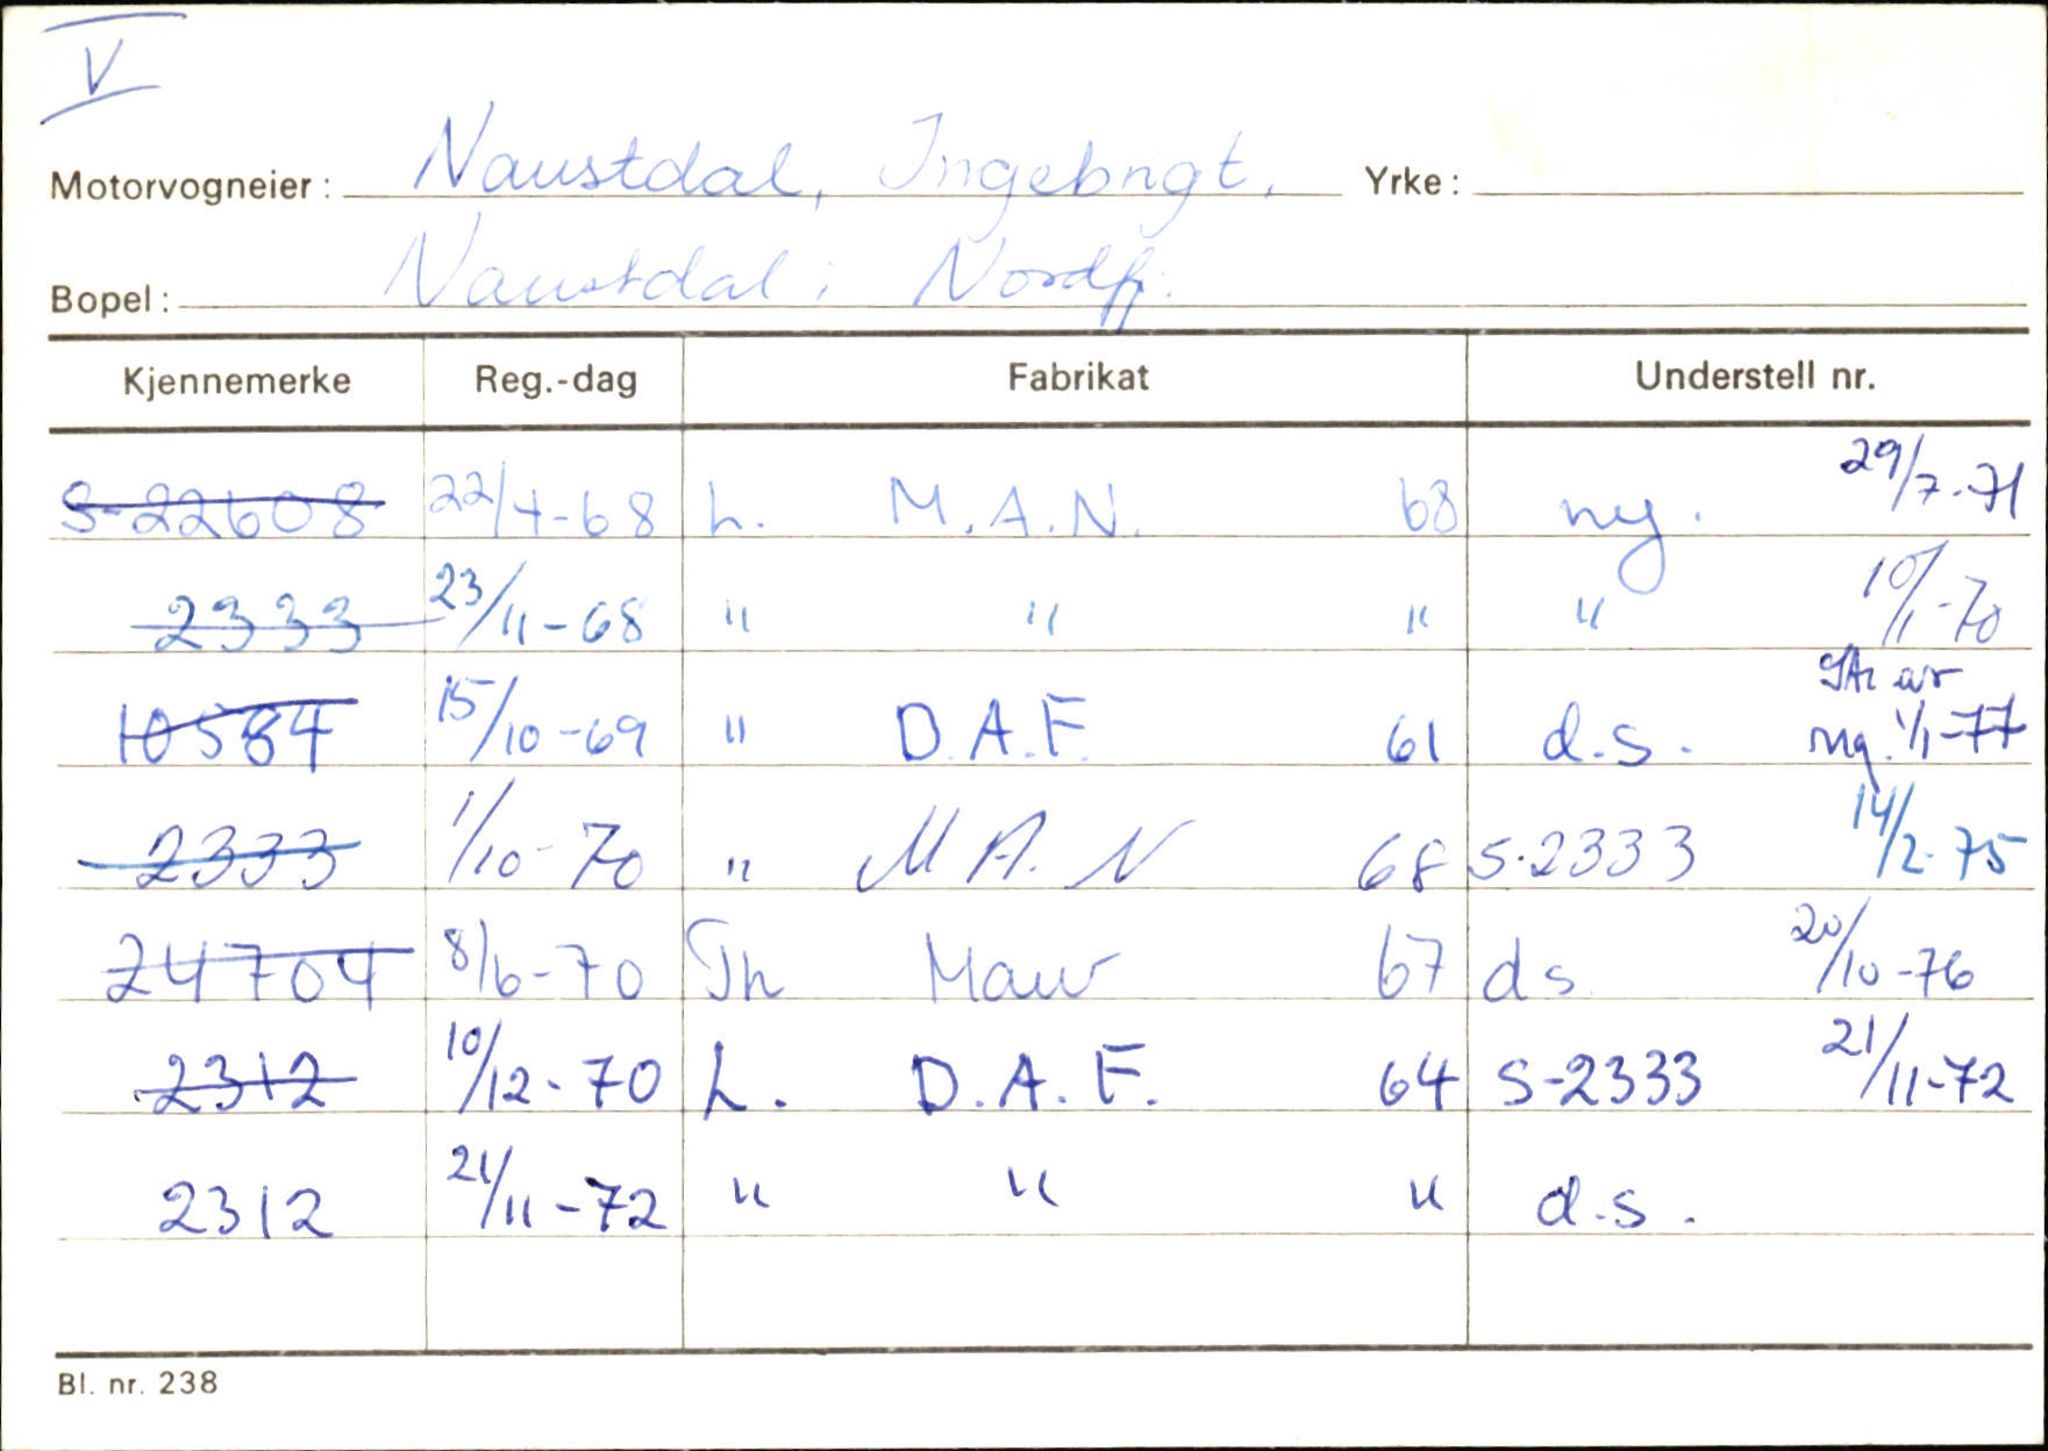 V
Motorvogneier: Naustdal, Ingebrigt. Yrke:
Bopel: Naustdal i Nordfj.
Kjennemerke Reg.-dag Fabrikat Understell nr.
S-22608 22/4-68 L. M.A.N. 68 ny. 29/7-71
2333 23/11-68 " " " " 10/1-70
10584 15/10-69 " D.A.F. 61 d.s. ny. 1/1-77
2333 1/10-70 " M A. N 68 S-2333 14/2-75
24704 8/6-70 Th Maur 67 ds 20/10-76
2312 10/12-70 L. D.A.F. 64 S-2333 21/11-72
2312 21/11-72 " " " d.s.
Bl. nr. 238